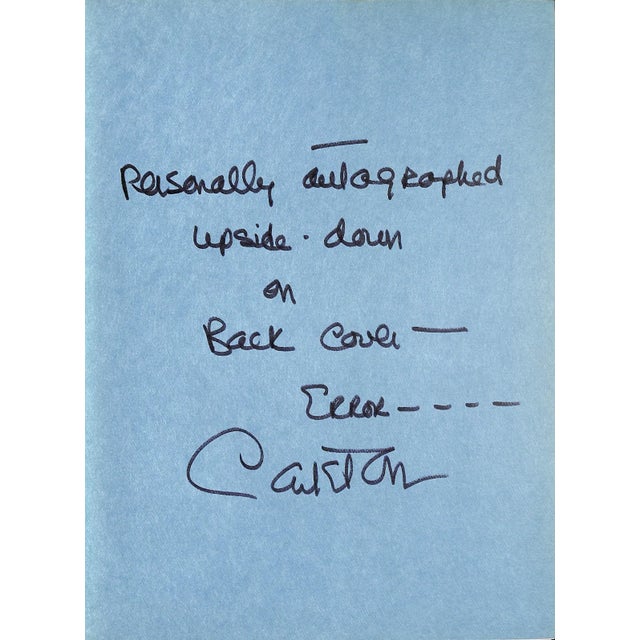 Personally autographed
upside-down
on
Back Cover —
Error - - - -
Carleton